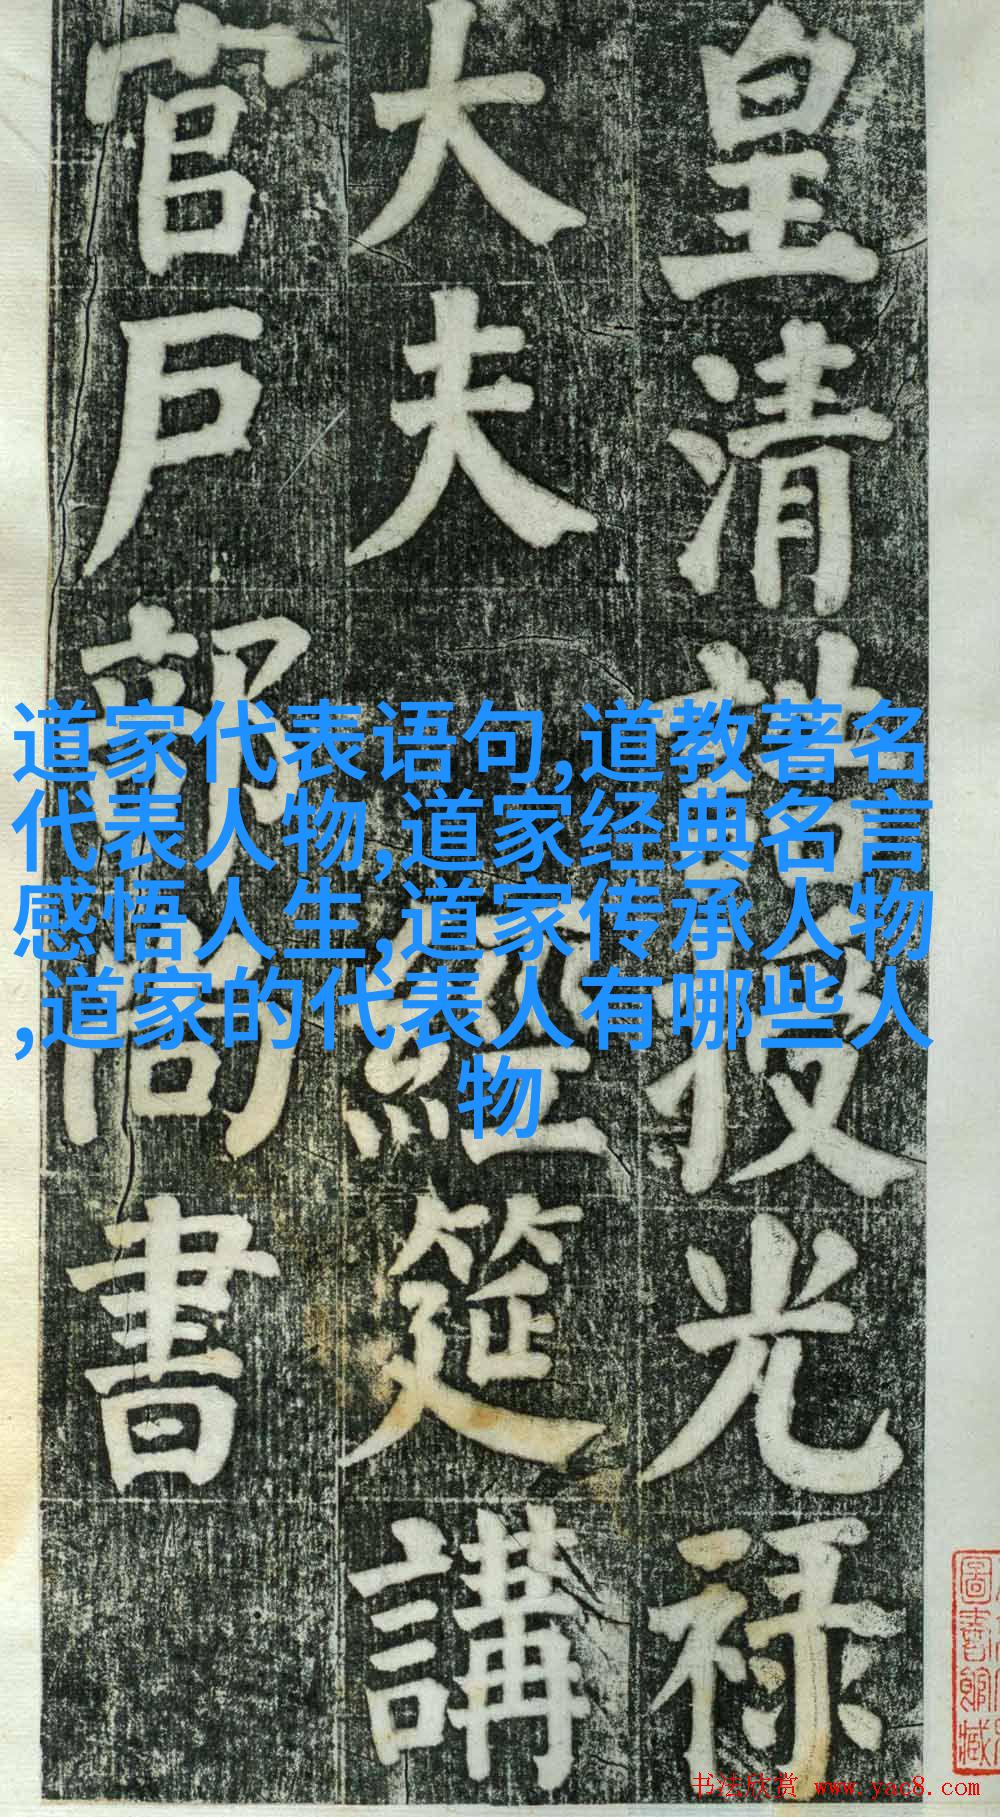 皇清誥授光祿
大夫經筵講
官戶部尚書
道家代表语句,道教著名
代表人物,道家经典名言
感悟人生,道家传承人物
,道家的代表人有哪些人
物
圖書館藏
书法欣赏 www.yac8.com